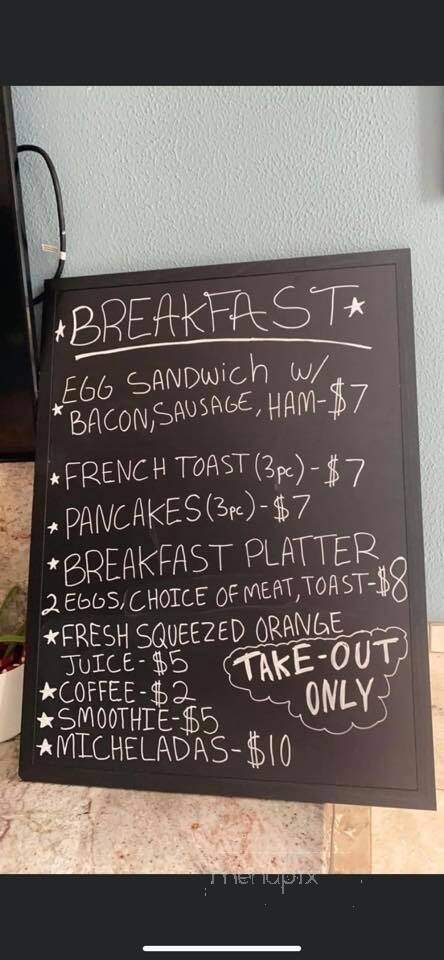 ★BREAKFAST★
EGG SANDWICH W/
★BACON, SAUSAGE, HAM-$7
★FRENCH TOAST (3pc)-$7
★PANCAKES (3pc)-$7
★BREAKFAST PLATTER
2 EGGS, CHOICE OF MEAT, TOAST-$8
★FRESH SQUEEZED ORANGE
JUICE-$5
★COFFEE-$2
★SMOOTHIE-$5
★MICHELADAS-$10
TAKE-OUT
ONLY
menupix